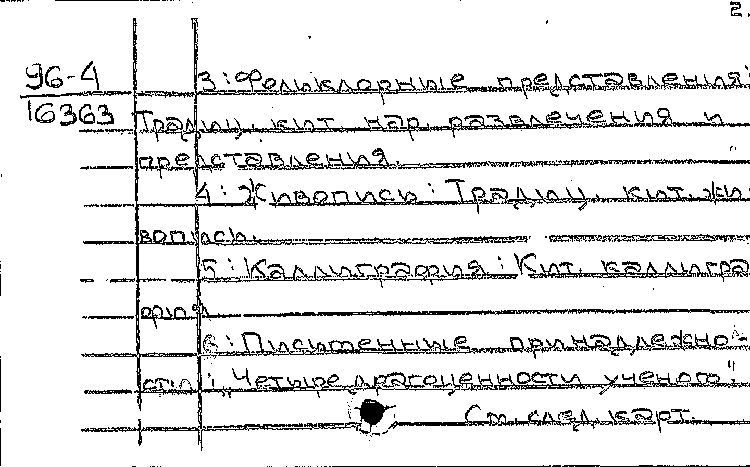 2.
96-4
16363
3: Фольклорные представления:
Традиц. кит. нар. развлечения и
представления.
4: Живопись: Традиц. кит. жи-
вопись.
5: Каллиграфия: Кит. каллигра
фия
6: Письменные принадлежно-
сти: "Четыре драгоценности ученого"
См. след. карт.